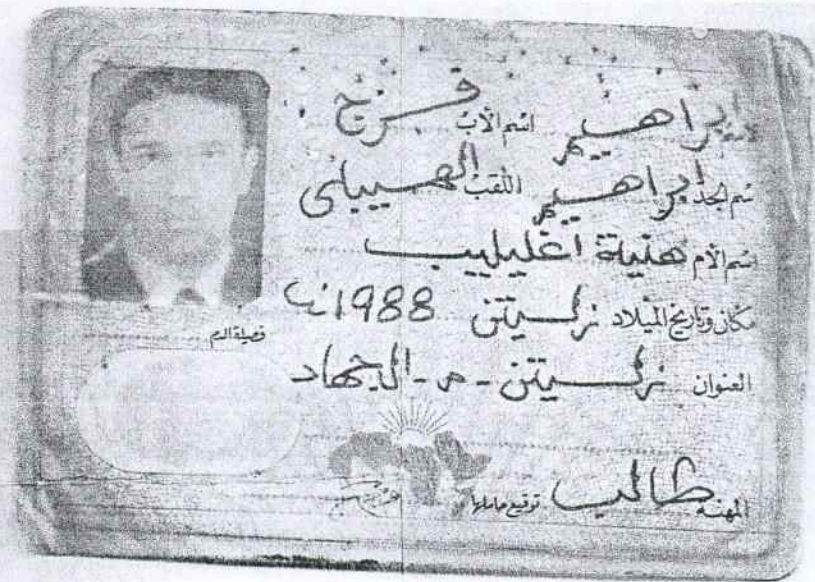 الاسم ابراهيم اسم الأب فرج
اسم الجد ابراهيم اللقب الهسيبلى
اسم الأم هنيلة اغليليب
مكان وتاريخ الميلاد زليتن 1988
فصيلة الدم
العنوان زليتن - م - الجهاد
المهنة طالب توقيع حاملها